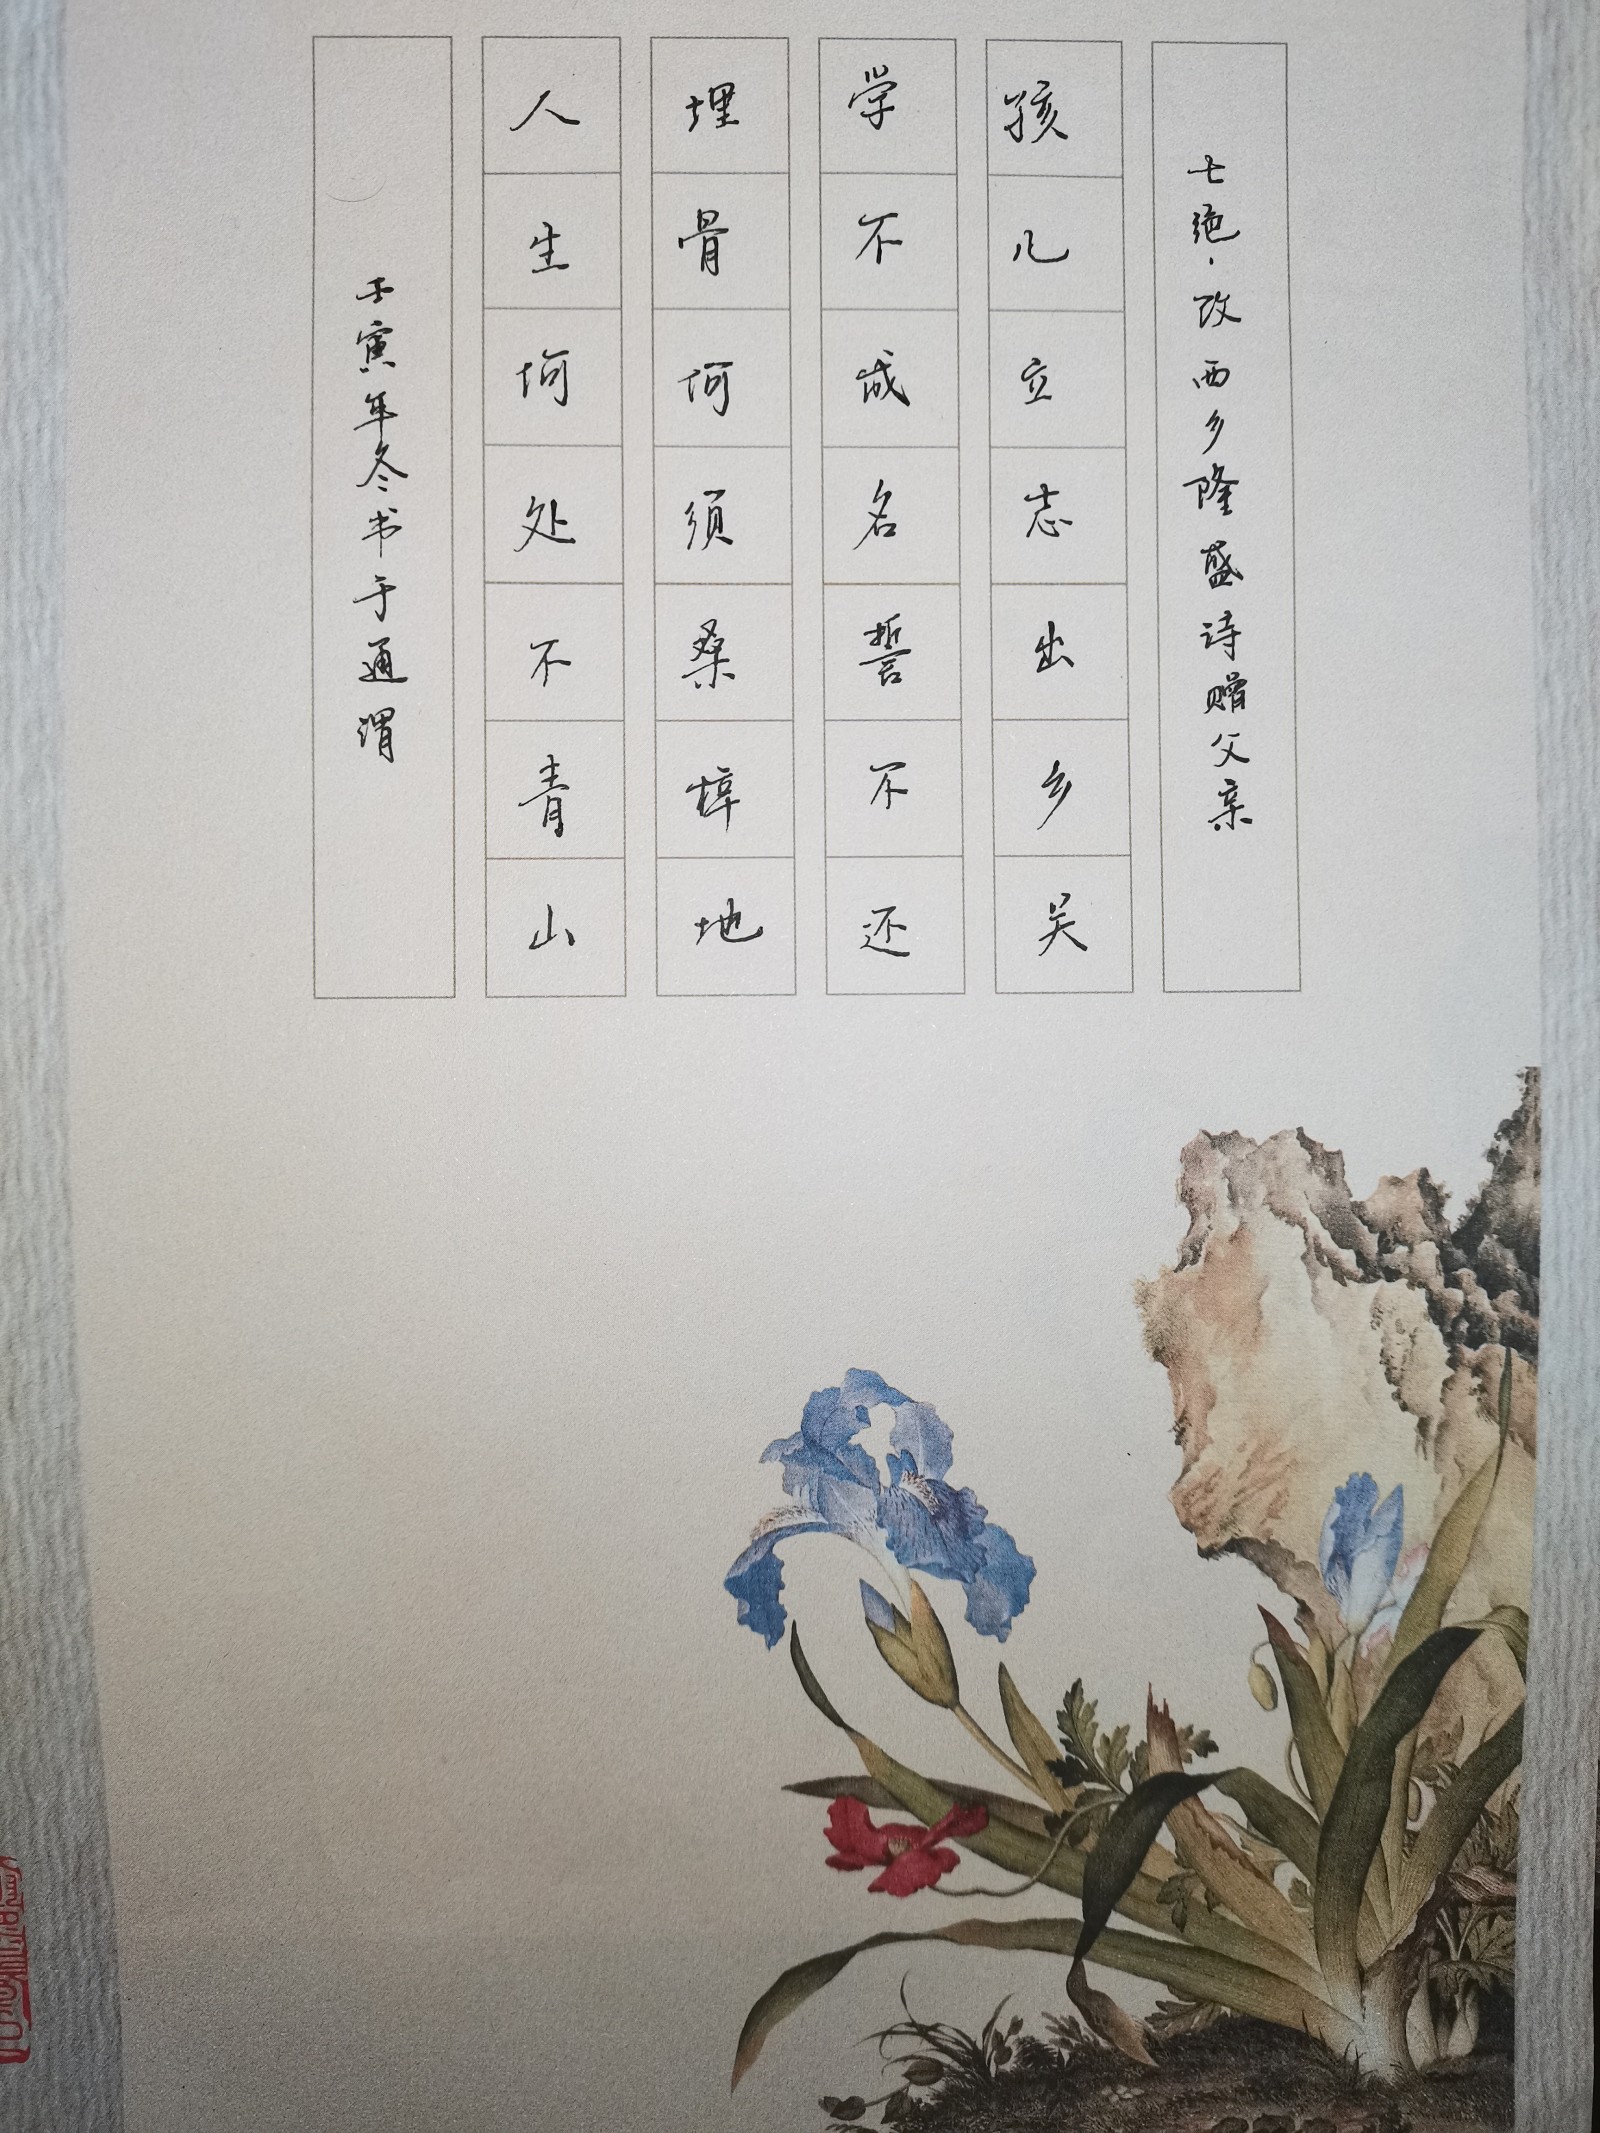 七绝·改西乡隆盛诗赠父亲
孩儿立志出乡关
学不成名誓不还
埋骨何须桑梓地
人生何处不青山
壬寅年冬书于通渭